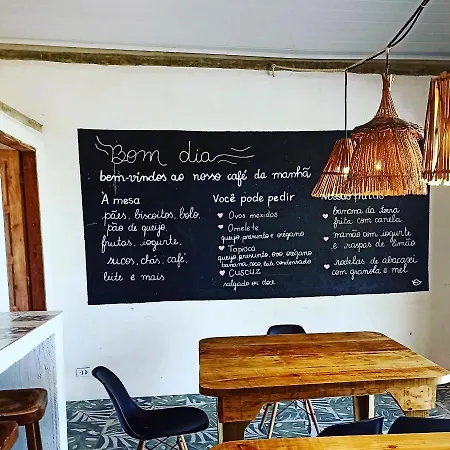 Bom dia
bem-vindos ao nosso café da manhã
À mesa
pães, biscoitos, bolo,
pão de queijo,
frutas, iogurte,
sucos, chás, café,
leite e mais
Você pode pedir
Ovos mexidos
Omelete
queijo, presunto e orégano
Tapioca
queijo, presunto, ovo, orégano
banana, coco, leite condensado
Cuscuz
salgado ou doce
banana da terra
frita com canela
mamão com iogurte
e raspas de limão
rodelas de abacaxi
com granola e mel